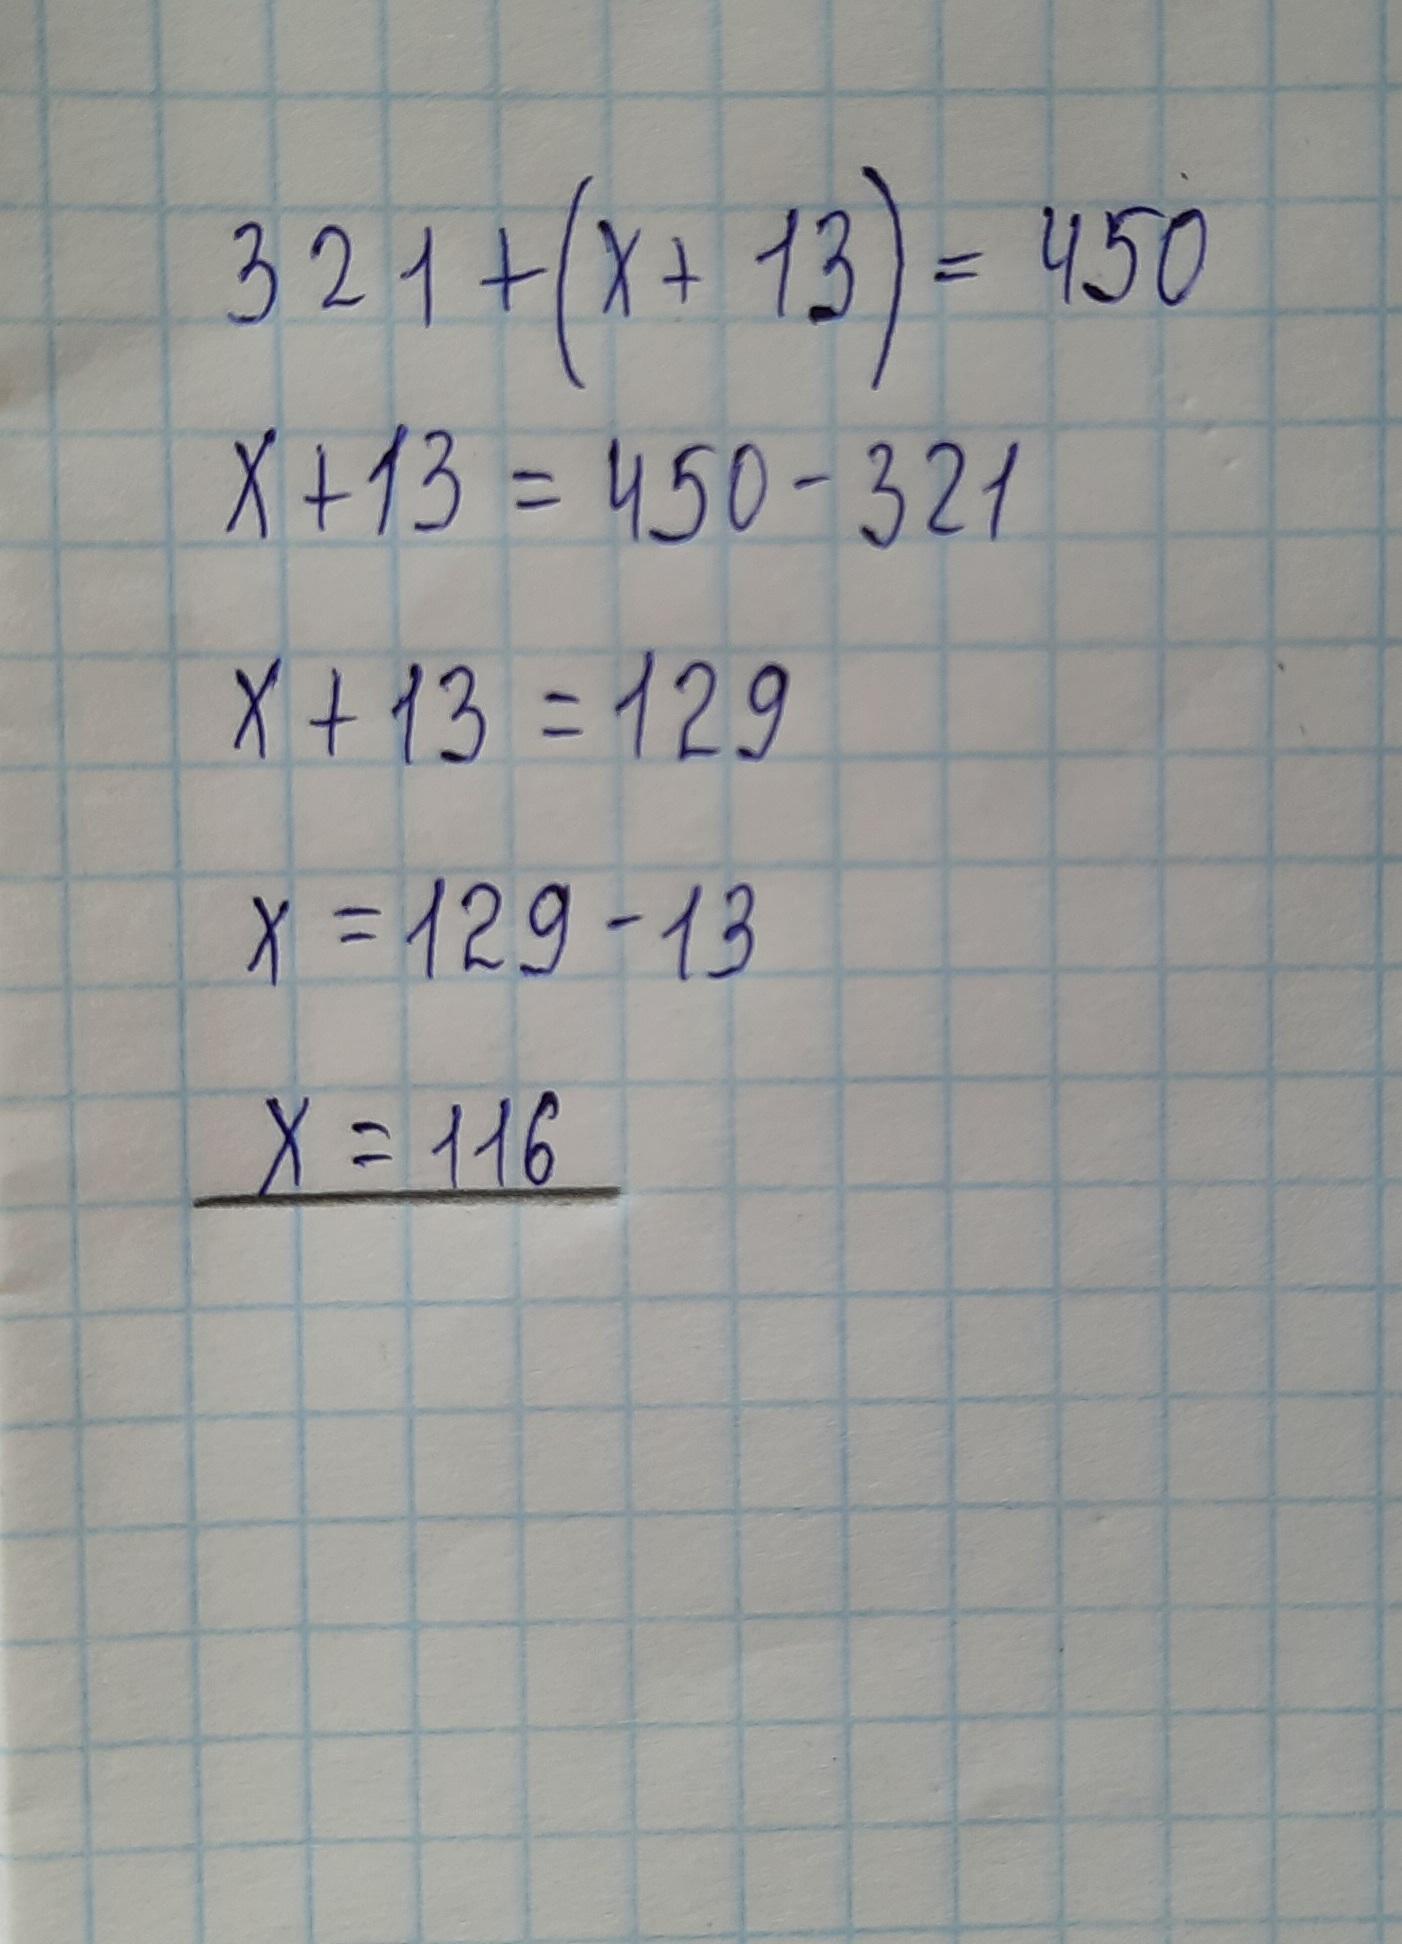 321+(x+13)=450
x+13=450-321
x+13=129
x=129-13
x=116